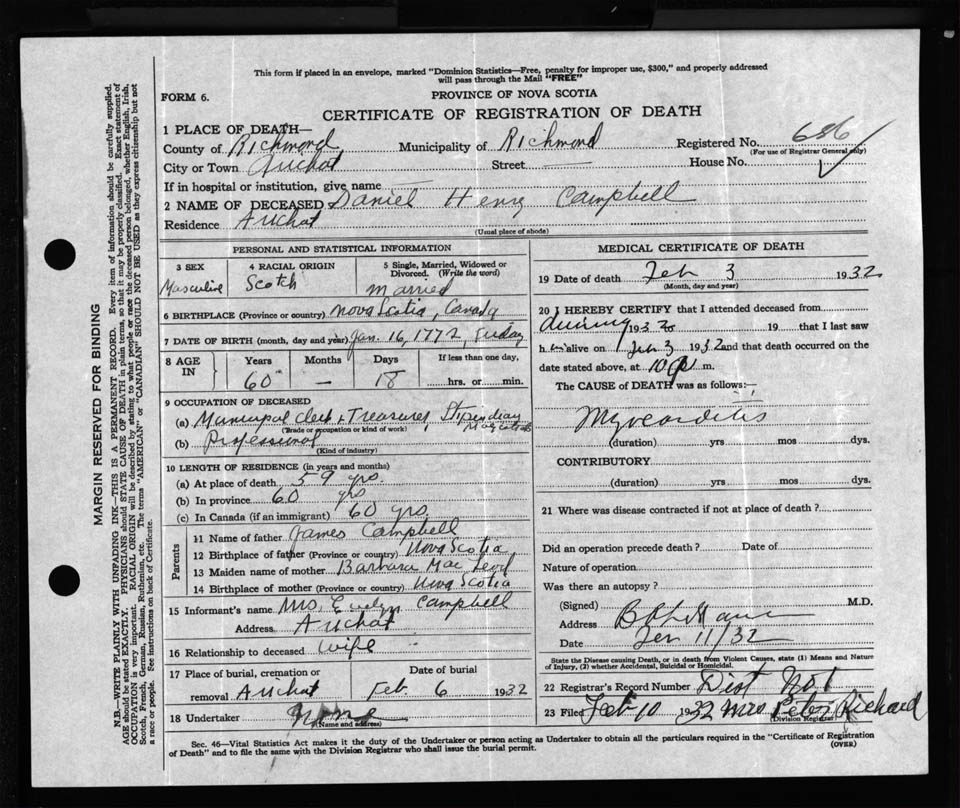 This form if placed in an envelope, marked "Dominion Statistics—Free, penalty for improper use, $300," and properly addressed
will pass through the Mail "FREE"
FORM 6.
PROVINCE OF NOVA SCOTIA
CERTIFICATE OF REGISTRATION OF DEATH
1 PLACE OF DEATH—
County of Richmond Municipality of Richmond Registered No. 686
(For use of Registrar General only)
City or Town Arichat Street House No.
If in hospital or institution, give name
2 NAME OF DECEASED Daniel Henry Campbell
Residence Arichat
(Usual place of abode)
PERSONAL AND STATISTICAL INFORMATION
3 SEX 4 RACIAL ORIGIN 5 Single, Married, Widowed or
Divorced. (Write the word)
Masculine Scotch Married
6 BIRTHPLACE (Province or country) Nova Scotia, Canada
7 DATE OF BIRTH (month, day and year) Jan. 16, 1772,
8 AGE IN Years Months Days If less than one day,
60 — 18 hrs. or min.
9 OCCUPATION OF DECEASED
(a) Municipal Clerk & Treasurer, Stipendiary Magistrate
(Trade or occupation or kind of work)
(b) Professional
(Kind of industry)
10 LENGTH OF RESIDENCE (in years and months)
(a) At place of death 59 yrs.
(b) In province 60 yrs
(c) In Canada (if an immigrant) 60 yrs.
Parents
11 Name of father James Campbell
12 Birthplace of father (Province or country) Nova Scotia
13 Maiden name of mother Barbara Mac Leod
14 Birthplace of mother (Province or country) Nova Scotia
15 Informant's name Mrs. Evelyn Campbell
Address Arichat
16 Relationship to deceased wife
17 Place of burial, cremation or Date of burial
removal Arichat Feb. 6 1932
18 Undertaker None
(Name and address)
MEDICAL CERTIFICATE OF DEATH
19 Date of death Feb 3 1932
(Month, day and year)
20 I HEREBY CERTIFY that I attended deceased from
during 1932 to 19 that I last saw
h im alive on Feb 3 1932 and that death occurred on the
date stated above, at 10 m.
The CAUSE of DEATH was as follows:—
Myocarditis
(duration) yrs mos dys.
CONTRIBUTORY
(duration) yrs mos dys.
21 Where was disease contracted if not at place of death?
Did an operation precede death? Date of
Nature of operation
Was there an autopsy?
(Signed) M.D.
Address
Date 11/32
State the Disease causing Death, or in death from Violent Causes, state (1) Means and Nature
of Injury, (2) whether Accidental, Suicidal or Homicidal.
22 Registrar's Record Number Dist No 1
23 Filed Feb 10 1932 Mrs. Peter Richard
(Division Registrar)
(OVER)
Sec. 46—Vital Statistics Act makes it the duty of the Undertaker or person acting as Undertaker to obtain all the particulars required in the "Certificate of Registration
of Death" and to file the same with the Division Registrar who shall issue the burial permit.
MARGIN RESERVED FOR BINDING
N.B.—WRITE PLAINLY WITH UNFADING INK—THIS IS A PERMANENT RECORD. Every item of information should be carefully supplied.
AGE should be stated EXACTLY. PHYSICIANS should STATE CAUSE OF DEATH in plain terms, so that it may be properly classified. Exact statement of
OCCUPATION is very important. RACIAL ORIGIN will be described by stating to what people or race the deceased person belonged, whether English, Irish,
Scotch, French, German, Russian, Ruthenian, etc. The terms "AMERICAN" or "CANADIAN" SHOULD NOT BE USED as they express citizenship but not
a race or people. See instructions on back of Certificate.